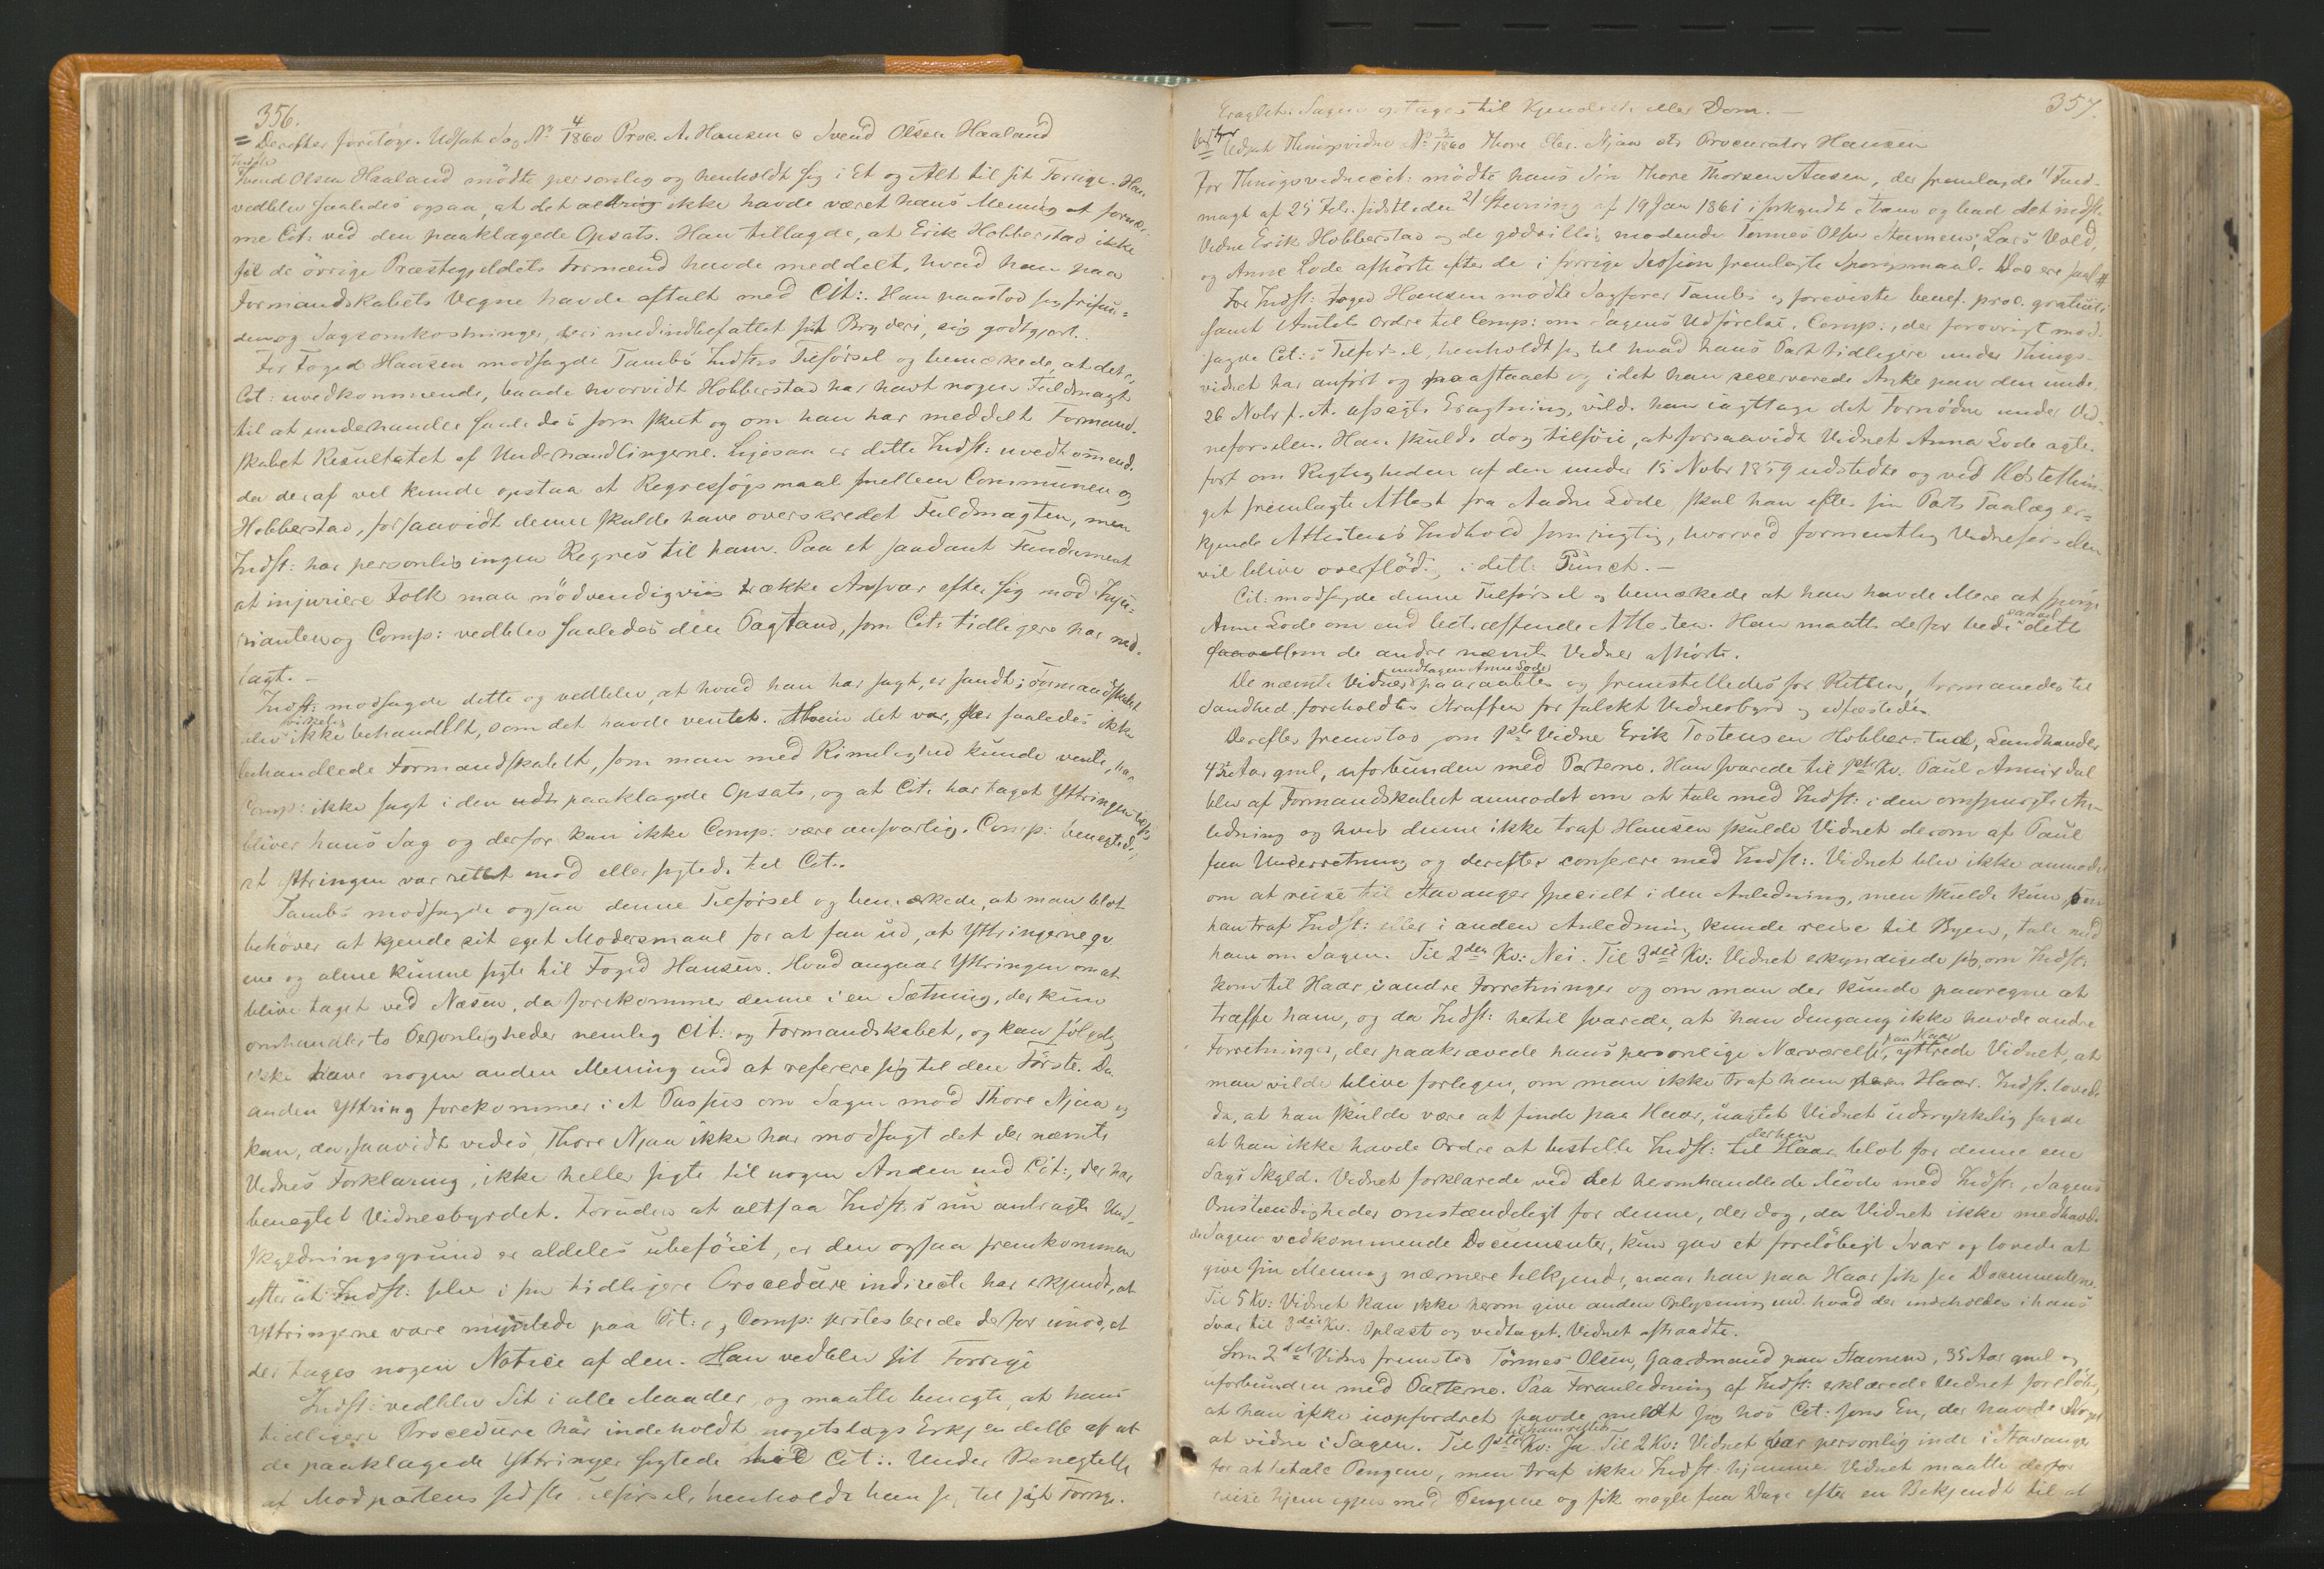 356.
Derefter foretoges Udsat Sag No 4/1860 Proc. A. Hansen c Svend Olsen Haaland
Indst:
Svend Olsen Haaland mödte personlig og henholdt sig i Et og Alt til sit Forrige. Han
vedblev saaledes ogsaa, at det ikke havde været hans Mening at fornær-
me Cit: ved den paaklagede Opsats. Han tillagde, at Erik Hobberstad ikke
til de övrige Præstegjeldets Formænd havde meddelt, hvad han paa
Formandskabets Vegne havde aftalt med Cit:. Han paastod sig frifun-
den og Sagsomkostninger, deri medindbefattet sit Bryderi, sig godtgjort.
For Foged Hansen modsagde Tambs Indst:s Tilförsel og bemærkede, at det er
Cit: uvedkommende, baade hvorvidt Hobberstad har havt nogen Fuldmagt
til at underhandle saaledes som skeet og om han har meddelt Formand-
skabet Resultatet af Underhandlingerne. Ligesaa er dette Indst: uvedkommende,
da deraf vel kunde opstaa et Regressögsmaal mellem Communen og
Hobberstad, forsaavidt denne skulde have overskredet Fuldmagten, men
Indst: har personlig ingen Regres til ham. Paa et saadant Fundament
at injuriere Folk maa nödvendigviis trække Ansvar efter sig mod Inju-
rianten og Comp: vedblev saaledes den Paastand, som Cit: tidligere har ned-
lagt. –
Indst: modsagde dette og vedblev, at hvad han har sagt, er sandt; Formandskabet
rimelig
blev ikke behandlet, som det havde ventet. Men det var, der saaledes ikke
behandlede Formandskabet, som man med Rimelighed kunde vente, har
Comp: ikke sagt i den paaklagede Opsats, og at Cit: har taget Yttringen til sig
bliver hans Sag og derfor kan ikke Comp: være ansvarlig. Comp: benegtede,
at Yttringen var rettet mod eller sigtede til Cit:.
Tambs modsagde ogsaa denne Tilförsel og bemærkede, at man blot
behöver at kjende sit eget Modersmaal for at faa ud, at Yttringerne
ene og alene kunne sigte til Foged Hansen. Hvad angaar Yttringen om at
blive taget ved Næsen, da forekommer denne i en Sætning, der kun
omhandler to Personligheder nemlig Cit: og Formandskabet, og kan fölgelig
ikke have nogen anden Mening end at referere sig til den Förste. Den
anden Yttring forekommer i et Passus om Sagen mod Thore Njaa og
kan, da, saavidt vides, Thore Njaa ikke har modsagt det der nævnte
Vidnes Forklaring, ikke heller sigte til nogen Anden end Cit:, der har
benegtet Vidnesbyrdet. Foruden at altsaa Indst:s nu antagte Und-
skyldningsgrund er aldeles ubeföiet, er den ogsaa fremkommen
efter at Indst: selv i sin tidligere Procedure indirecte har erkjendt, at
Yttringerne vare myntede paa Cit: og Comp: protesterede derfor imod, at
der tages nogen Notice af den. Han vedblev sit Forrige
Indst: vedblev Sit i alle Maader, og maatte benegte, at hans
tidligere Procedure har indeholdt nogetslags Erkjendelse af at
de paaklagede Yttringer sigtede til Cit:. Under Benegtelse
af Modpartens sidste Tilförsel, henholdt han sig til sit Forrige.
357.
Eragtet: Sagen optages til Kjendelse eller Dom. –
Udsat Thingsvidne No 3/1860 Thore Njaa ctr Procurator Hansen
For Thingsvidnecit: mödte hans Sön Thore Thorsen Aasen, der fremlagde 1) Fuld-
magt af 25 Feb. sidstleden 2) Stevning af 19 Jan 1861 i forkyndt Stand og bad det indst.
Vidne Erik Hobberstad og de godvillig mödende Tönnes Olsen Stavnem, Lars Vold,
og Anne Lode afhörte efter de i forrige Session fremlagte Spörgsmaal.
For Indst: Foged Hansen mödte Sagförer Tambs og foreviste benef. proc. gratuit:
samt Amtets Ordre til Comp: om Sagens Udförelse. Comp:, der forövrigt mod-
sagde Cit:s Tilförsel, henholdt sig til hvad hans Part tidligere under Things-
vidnet har anfört og paastaaet og idet han reserverede Anke paa den under
26 Novbr f. A. afsagte Eragtning, vilde han iagttage det Fornödne under Vid-
neförselen. Han skulde dog tilföie, at forsaavidt Vidnet Anna Lode agtes
fört om Rigtigheden af den under 15 Novbr 1859 udstedte og ved Höstethin-
get fremlagte Attest fra Audne Lode skal han efter sin Parts Paalæg er-
kjende Attestens Indhold som rigtig, hvorved formentlig Vidneförselen
vil blive overflödig i dette Punct. –
Cit: modsagde denne Tilförsel og bemærkede at han havde Mere at spörge
Anne Lode om end betræffende Attesten. Han maatte derfor bede dette
saavel
som de andre nævnte Vidner afhörte.
undtagen Anne Lode
De nævnte Vidner paaraabtes og fremstilledes for Retten, formanedes til
Sandhed foreholdtes Straffen for falskt Vidnesbyrd og edfæstedes
Derefter fremstod som 1ste Vidne Erik Tostensen Hobberstad, Landhandler
45 Aar gml, uforbunden med Parterne. Han svarede til 1ste Kv. Paul Annisdal
blev af Formandskabet anmodet om at tale med Indst: i den omspurgte An-
ledning og hvis denne ikke traf Hansen skulde Vidnet derom af Paul
faa Underretning og derefter conferere med Indst:. Vidnet blev ikke anmodet
om at reise til Stavanger specielt i den Anledning, men skulde kun om
han traf Indst: eller i anden Anledning kunde reise til Byen, tale med
ham om Sagen. Til 2den Kv: Nei. Til 3die Kv: Vidnet erkyndigede sig om Indst:
kom til Haar i andre Forretninger og om man der kunde paaregne at
træffe ham, og da Indst: hertil svarede, at han dengang ikke havde andre
paa Haar
Forretninger, der paakrævede hans personlige Nærværelse, yttrede Vidnet, at
man vilde blive forlegen, om man ikke traf ham paa Haar. Indst. lovede
da, at han skulde være at finde paa Haar, uagtet Vidnet udtrykkelig sagde
derhen
at han ikke havde Ordre at bestille Indst: til Haar blot for denne ene
Sags Skyld. Vidnet forklarede ved det heromhandlede Möde med Indst:, Sagens
Omstændigheder omstændeligt for denne, der dog, da Vidnet ikke medhavde
de Sagen vedkommende Documenter, kun gav et forelöbigt Svar og lovede at
give sin Mening nærmere tilkjende, naar han paa Haar fik see Documenterne.
Til 5 Kv: Vidnet kan ikke herom give anden Oplysning end hvad der indeholdes i hans
Svar til 3die Kv. Oplæst og vedtaget. Vidnet aftraadte.
Som 2det Vidne fremstod Tönnes Olsen, Gaardmand paa Stavnem, 35 Aar gml og
uforbunden med Parterne. Paa Foranledning af Indst: erklærede Vidnet forelöbig,
at han ikke uopfordret havde meldt sig hos Cit: som En, der havde Noget
at vidne i Sagen. Til 1ste Kv: Ja Til 2 Kv: Vidnet var personlig inde i Stavanger
for at betale Pengene, men traf ikke Indst: hjemme. Vidnet maatte derfor
reise hjem igjen med Pengene og fik nogle faa Dage efter en Bekjendt til at